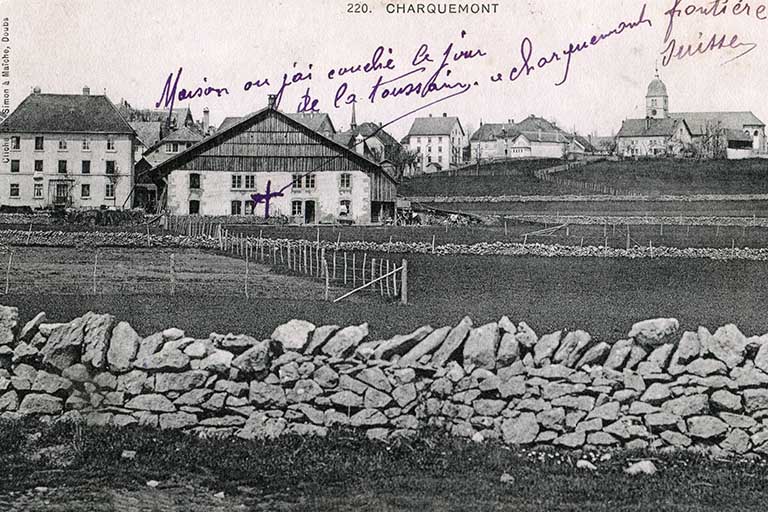 220. CHARQUEMONT
Maison où j'ai couché le jour
de la toussaint. a charquemont frontière
suisse
Cliché Simon à Maîche, Doubs